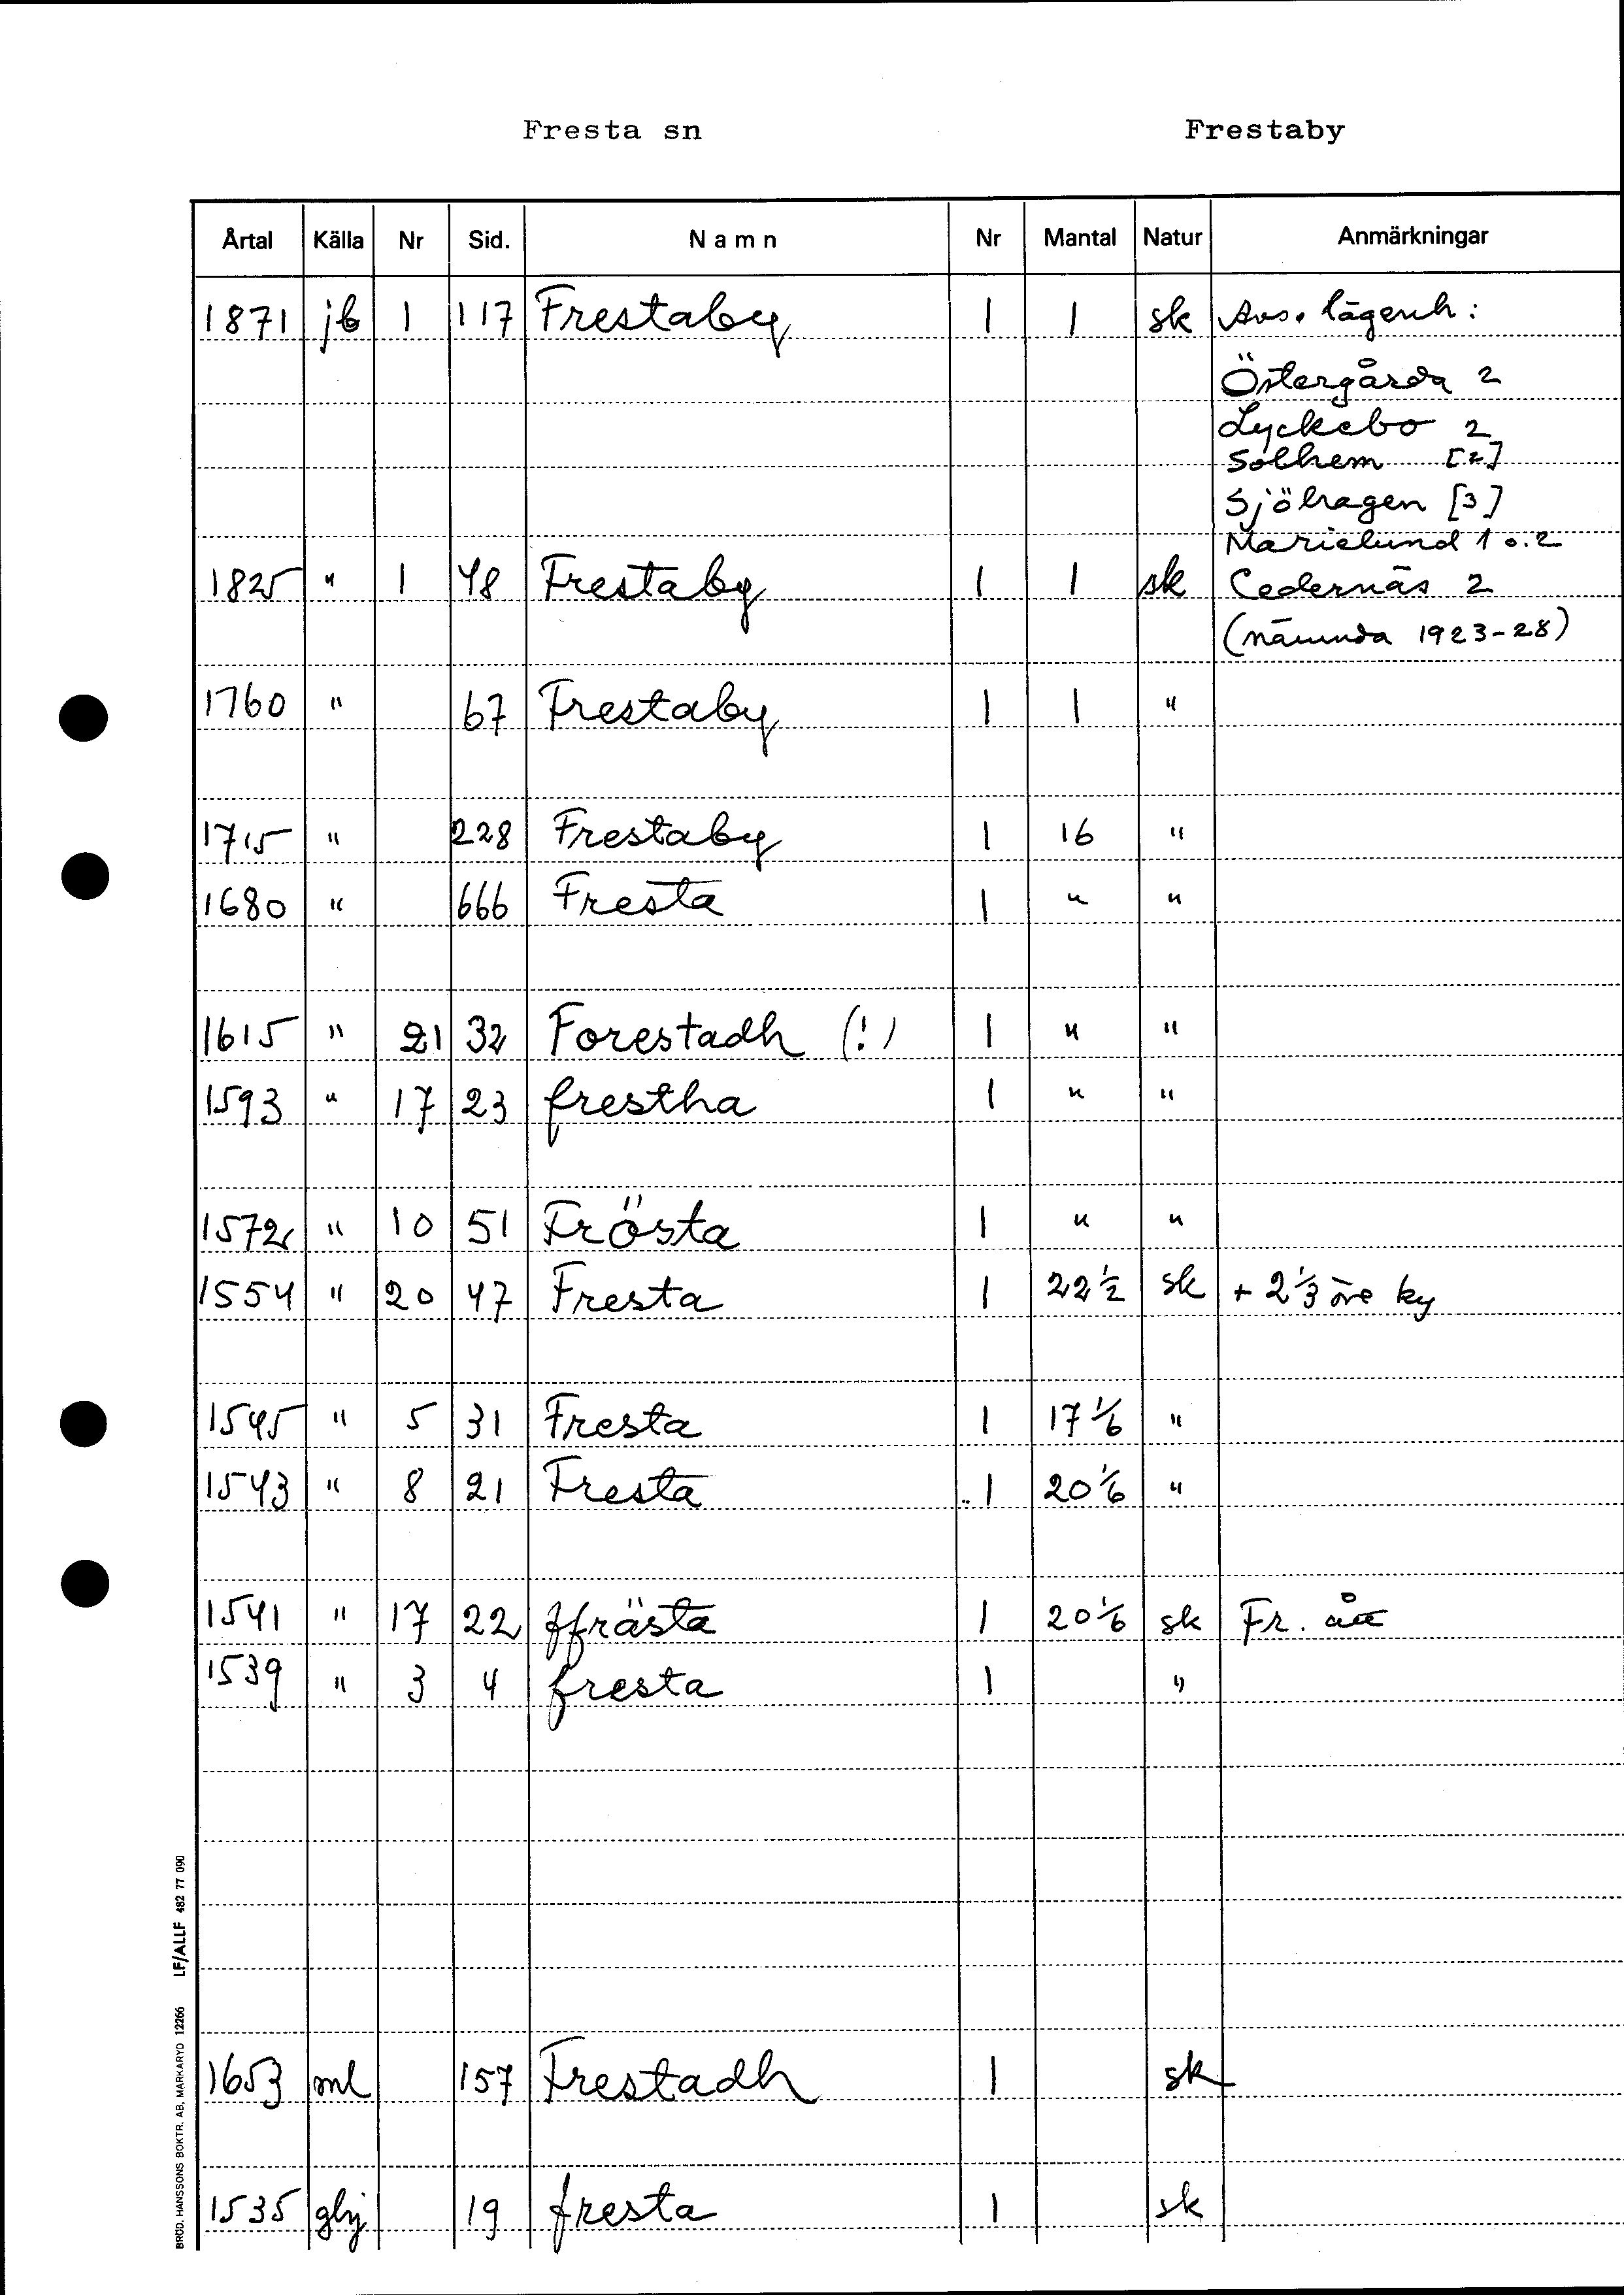 Fresta sn Frestaby
Årtal Källa Nr Sid. Namn Nr Mantal Natur Anmärkningar
1871 jb 1 117 Frestaby 1 1 sk Avs. lägenh:
Östergårda 2
Lyckebo 2
Solhem [2]
Sjöhagen [3]
Marielund 1 o. 2
1825 " 1 48 Frestaby 1 1 sk Cedernäs 2
(nämnda 1923-28)
1760 " 67 Frestaby 1 1 "
1715 " 228 Frestaby 1 16 "
1680 " 666 Fresta 1 " "
1615 " 21 32 Forestadh (!) 1 " "
1593 " 17 23 frestha 1 " "
1572 " 10 51 Frösta 1 " "
1554 " 20 47 Fresta 1 22 1/2 sk + 2 1/3 öre ky
1545 " 5 31 Fresta 1 17 1/6 "
1543 " 8 21 Fresta 1 20 1/6 "
1541 " 17 22 ffrästa 1 20 1/6 sk Fr. ått
1539 " 3 4 fresta 1 "
1653 ml 157 Frestadh 1 sk
1535 gbj 19 fresta 1 sk
BRÖD. HANSSONS BOKTR. AB, MARKARYD 12266 LF/ALLF 482 77 090